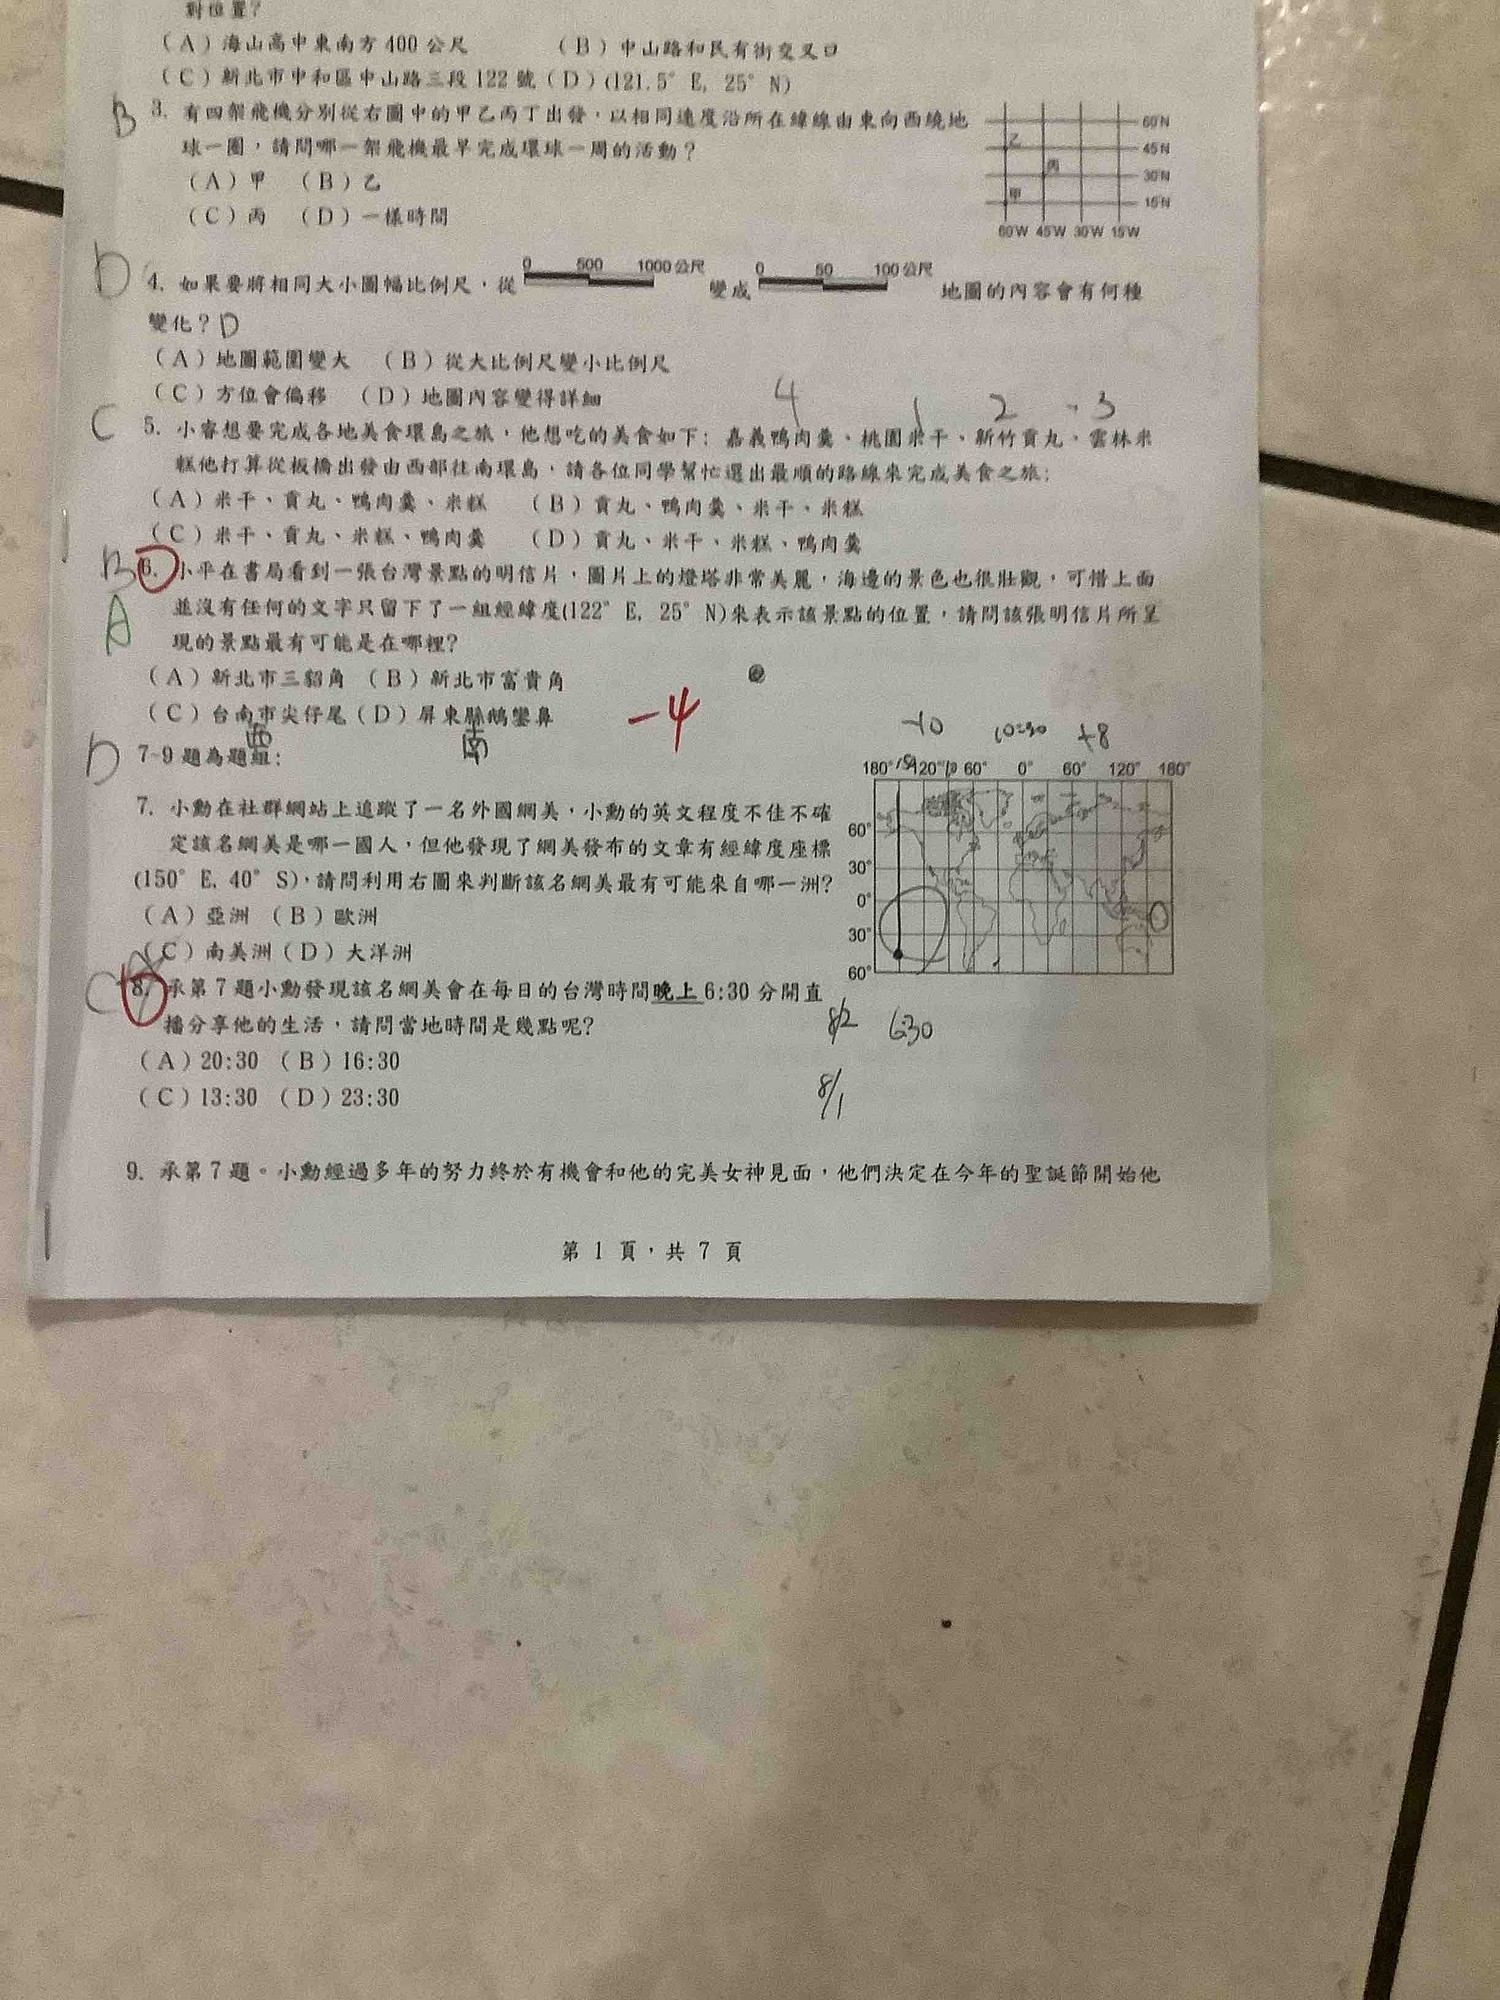 對位置?
(A)海山高中東南方400公尺 (B)中山路和民有街交叉口
(C)新北市中和區中山路三段122號(D)(121.5° E, 25° N)
B 3. 有四架飛機分別從右圖中的甲乙丙丁出發,以相同速度沿所在緯線由東向西繞地
球一圈,請問哪一架飛機最早完成環球一周的活動?
(A)甲 (B)乙
(C)丙 (D)一樣時間
60°N
乙
45°N
丙
30°N
甲
15°N
60°W 45°W 30°W 15°W
D 4. 如果要將相同大小圖幅比例尺,從 0 500 1000公尺 變成 0 50 100公尺 地圖的內容會有何種
變化?D
(A)地圖範圍變大 (B)從大比例尺變小比例尺
(C)方位會偏移 (D)地圖內容變得詳細
4 1 2 3
C 5. 小睿想要完成各地美食環島之旅,他想吃的美食如下:嘉義鴨肉羹、桃園米干、新竹貢丸、雲林米
糕他打算從板橋出發由西部往南環島,請各位同學幫忙選出最順的路線來完成美食之旅:
(A)米干、貢丸、鴨肉羹、米糕 (B)貢丸、鴨肉羹、米干、米糕
(C)米干、貢丸、米糕、鴨肉羹 (D)貢丸、米干、米糕、鴨肉羹
B 6. 小平在書局看到一張台灣景點的明信片,圖片上的燈塔非常美麗,海邊的景色也很壯觀,可惜上面
A 並沒有任何的文字只留下了一組經緯度(122° E, 25° N)來表示該景點的位置,請問該張明信片所呈
現的景點最有可能是在哪裡?
(A)新北市三貂角 (B)新北市富貴角
(C)台南市尖仔尾(D)屏東縣鵝鑾鼻
西 南
-4
D 7-9題為題組:
-10 10:30 +8
180° 150 120° 60° 0° 60° 120° 180°
60°
30°
0°
30°
60°
7. 小勳在社群網站上追蹤了一名外國網美,小勳的英文程度不佳不確
定該名網美是哪一國人,但他發現了網美發布的文章有經緯度座標
(150° E, 40° S),請問利用右圖來判斷該名網美最有可能來自哪一洲?
(A)亞洲 (B)歐洲
(C)南美洲(D)大洋洲
C 8. 承第7題小勳發現該名網美會在每日的台灣時間晚上6:30分開直
播分享他的生活,請問當地時間是幾點呢?
8/2 630
(A)20:30 (B)16:30
(C)13:30 (D)23:30
8/1
9. 承第7題。小勳經過多年的努力終於有機會和他的完美女神見面,他們決定在今年的聖誕節開始他
第 1 頁,共 7 頁